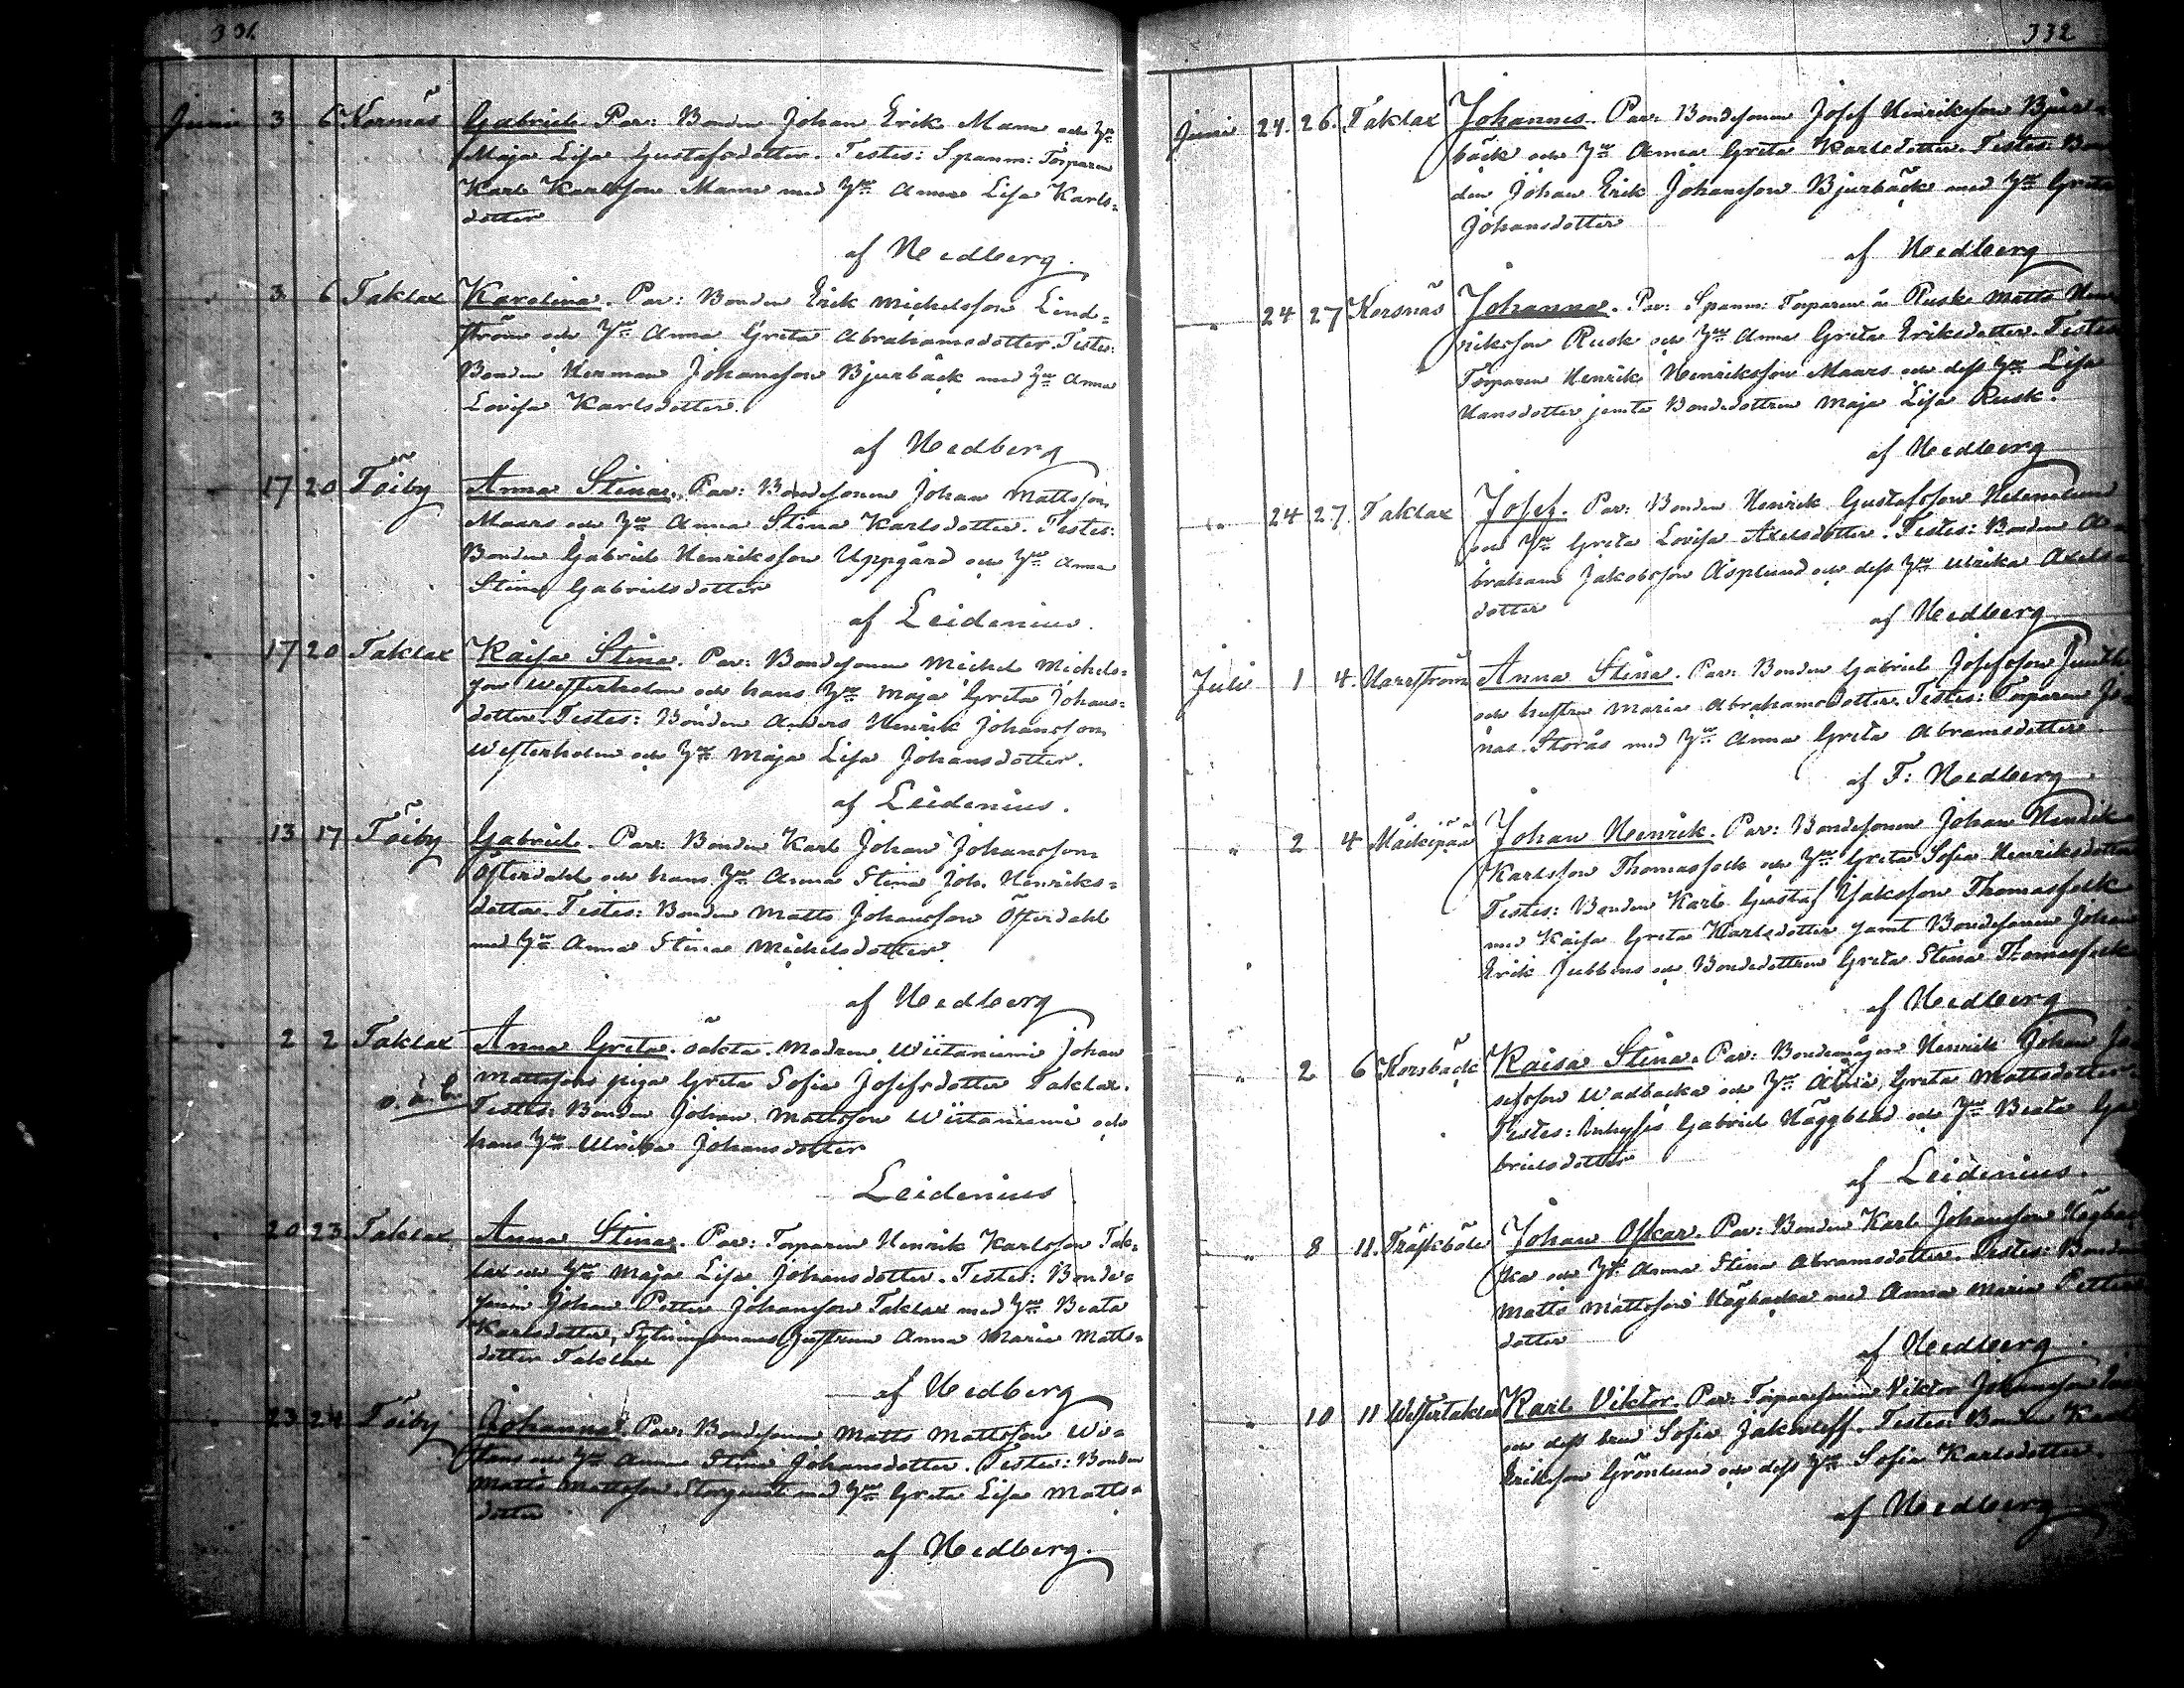 331.
Juni 3 6 Kornäs Gabriel. Par: Bonden Johan Erik Mann och H:u
Maja Lisa Gustafsdotter. Testes: Spanm: Torparen
Karl Karlsson Mann med H:u Anna Lisa Karls=
dotter
af Hedberg.
3 6 Taklax Karolina. Par: Bonden Erik Michelsson Lind=
ström och H:u Anna Greta Abrahamsdotter. Testes:
Bonden Herman Johansson Bjurbäck med H:u Anna
Lovisa Karlsdotter.
af Hedberg
17 20 Töiby Anna Stina. Par: Bondesonen Johan Mattsson
Maars och H:u Anna Stina Karlsdotter. Testes:
Bonden Gabriel Henriksson Uppgård och H:u Anna
Stina Gabrielsdotter
af Leidenius.
17 20 Taklax Kaisa Stina. Par: Bondesonen Michel Michels=
son Westerholm och hans H:u Maja Greta Johans=
dotter. Testes: Bonden Anders Henrik Johansson
Westerholm och H:u Maja Lisa Johansdotter.
af Leidenius.
13 17 Töiby Gabriel. Par: Bonden Karl Johan Johansson
Österdahl och hans H:u Anna Stina Joh. Henriks=
dotter. Testes: Bonden Matts Johansson Österdahl
med H:u Anna Stina Michelsdotter.
af Hedberg
2 2 Taklax Anna Greta. oäkta. Modren Wiitaniemi Johan
Mattssons piga Greta Sofia Josefsdotter Taklax.
o. ä. b. Testes: Bonden Johan Mattsson Wiitaniemi och
hans H:u Ulrika Johansdotter
Leidenius
20 23 Taklax Anna Stina. Par: Torparen Henrik Karlsson Tak=
lax och H:u Maja Lisa Johansdotter. Testes: Bonde=
sonen Johan Petter Johansson Taklax med H:u Beata
Karlsdotter, Sytningsmans hustrun Anna Maria Matts=
dotter Taklax
af Hedberg
23 24 Töiby Johanna. Par: Bondesonen Matts Mattsson
och H:u Anna Stina Johansdotter. Testes: Bonden
Matts Mattsson med H:u Greta Lisa Matts=
dotter
af Hedberg.
332
Juni 24. 26. Taklax Johannes. Par: Bondesonen Josef Henriksson Bjur=
bäck och H:u Anna Greta Karlsdotter. Testes: Bon
den Johan Erik Johansson Bjurbäck med H:u Greta
Johansdotter
af Hedberg
24 27 Korsnäs Johanna. Par: Spanm: Torparen å Rusk Matts Hen
riksson Rusk och H:u Anna Greta Eriksdotter. Testes
Torparen Henrik Henriksson Maars och dess H:u Lisa
Hansdotter jemte Bondedottren Maja Lisa Rusk.
af Hedberg
24 27. Taklax Josef. Par: Bonden Henrik Gustafsson Helenelund
och H:u Greta Lovisa Axelsdotter. Testes: Bonden A=
braham Jakobsson Asplund och dess H:u Ulrika Axels=
dotter
af Hedberg
Juli 1 4. Harrström Anna Stina. Par: Bonden Gabriel Josefsson
och hustru Maria Abrahamsdotter. Testes: Torparen Jo
nas Storås med H:u Anna Greta Abramsdotter.
af F: Hedberg
2 4 Johan Henrik. Par: Bondesonen Johan Henrik
Karlsson Thomasfolk och H:u Greta Sofia Henriksdotter
Testes: Bonden Karl Gustaf Isaksson Thomasfolk
med Kaisa Greta Karlsdotter samt Bondesonen Johan
Erik Jubbens och Bondedottren Greta Stina Thomasfolk
af Hedberg
2 6 Korsbäck Kaisa Stina. Par: Bondemågen Henrik Johan Jo
sefsson Wadbacka och H:u Anna Greta Mattsdotter
Testes: Inhyses Gabriel Häggblad och H:u Beata Ga
brielsdotter
af Leidenius.
8 11. Träskböle Johan Oskar. Par: Bonden Karl Johansson Högbac
ka och H:u Anna Stina Abramsdotter. Testes: Bonden
Matts Mattsson Högbacka med Anna Maria Petters
dotter
af Hedberg
10 11 Westertaklax Karl Viktor. Par: Torparesonen Viktor Johansson
och dess brud Sofia Jakovleff. Testes: Bonden Karl
Eriksson Grönlund och dess H:u Sofia Karlsdotter.
af Hedberg